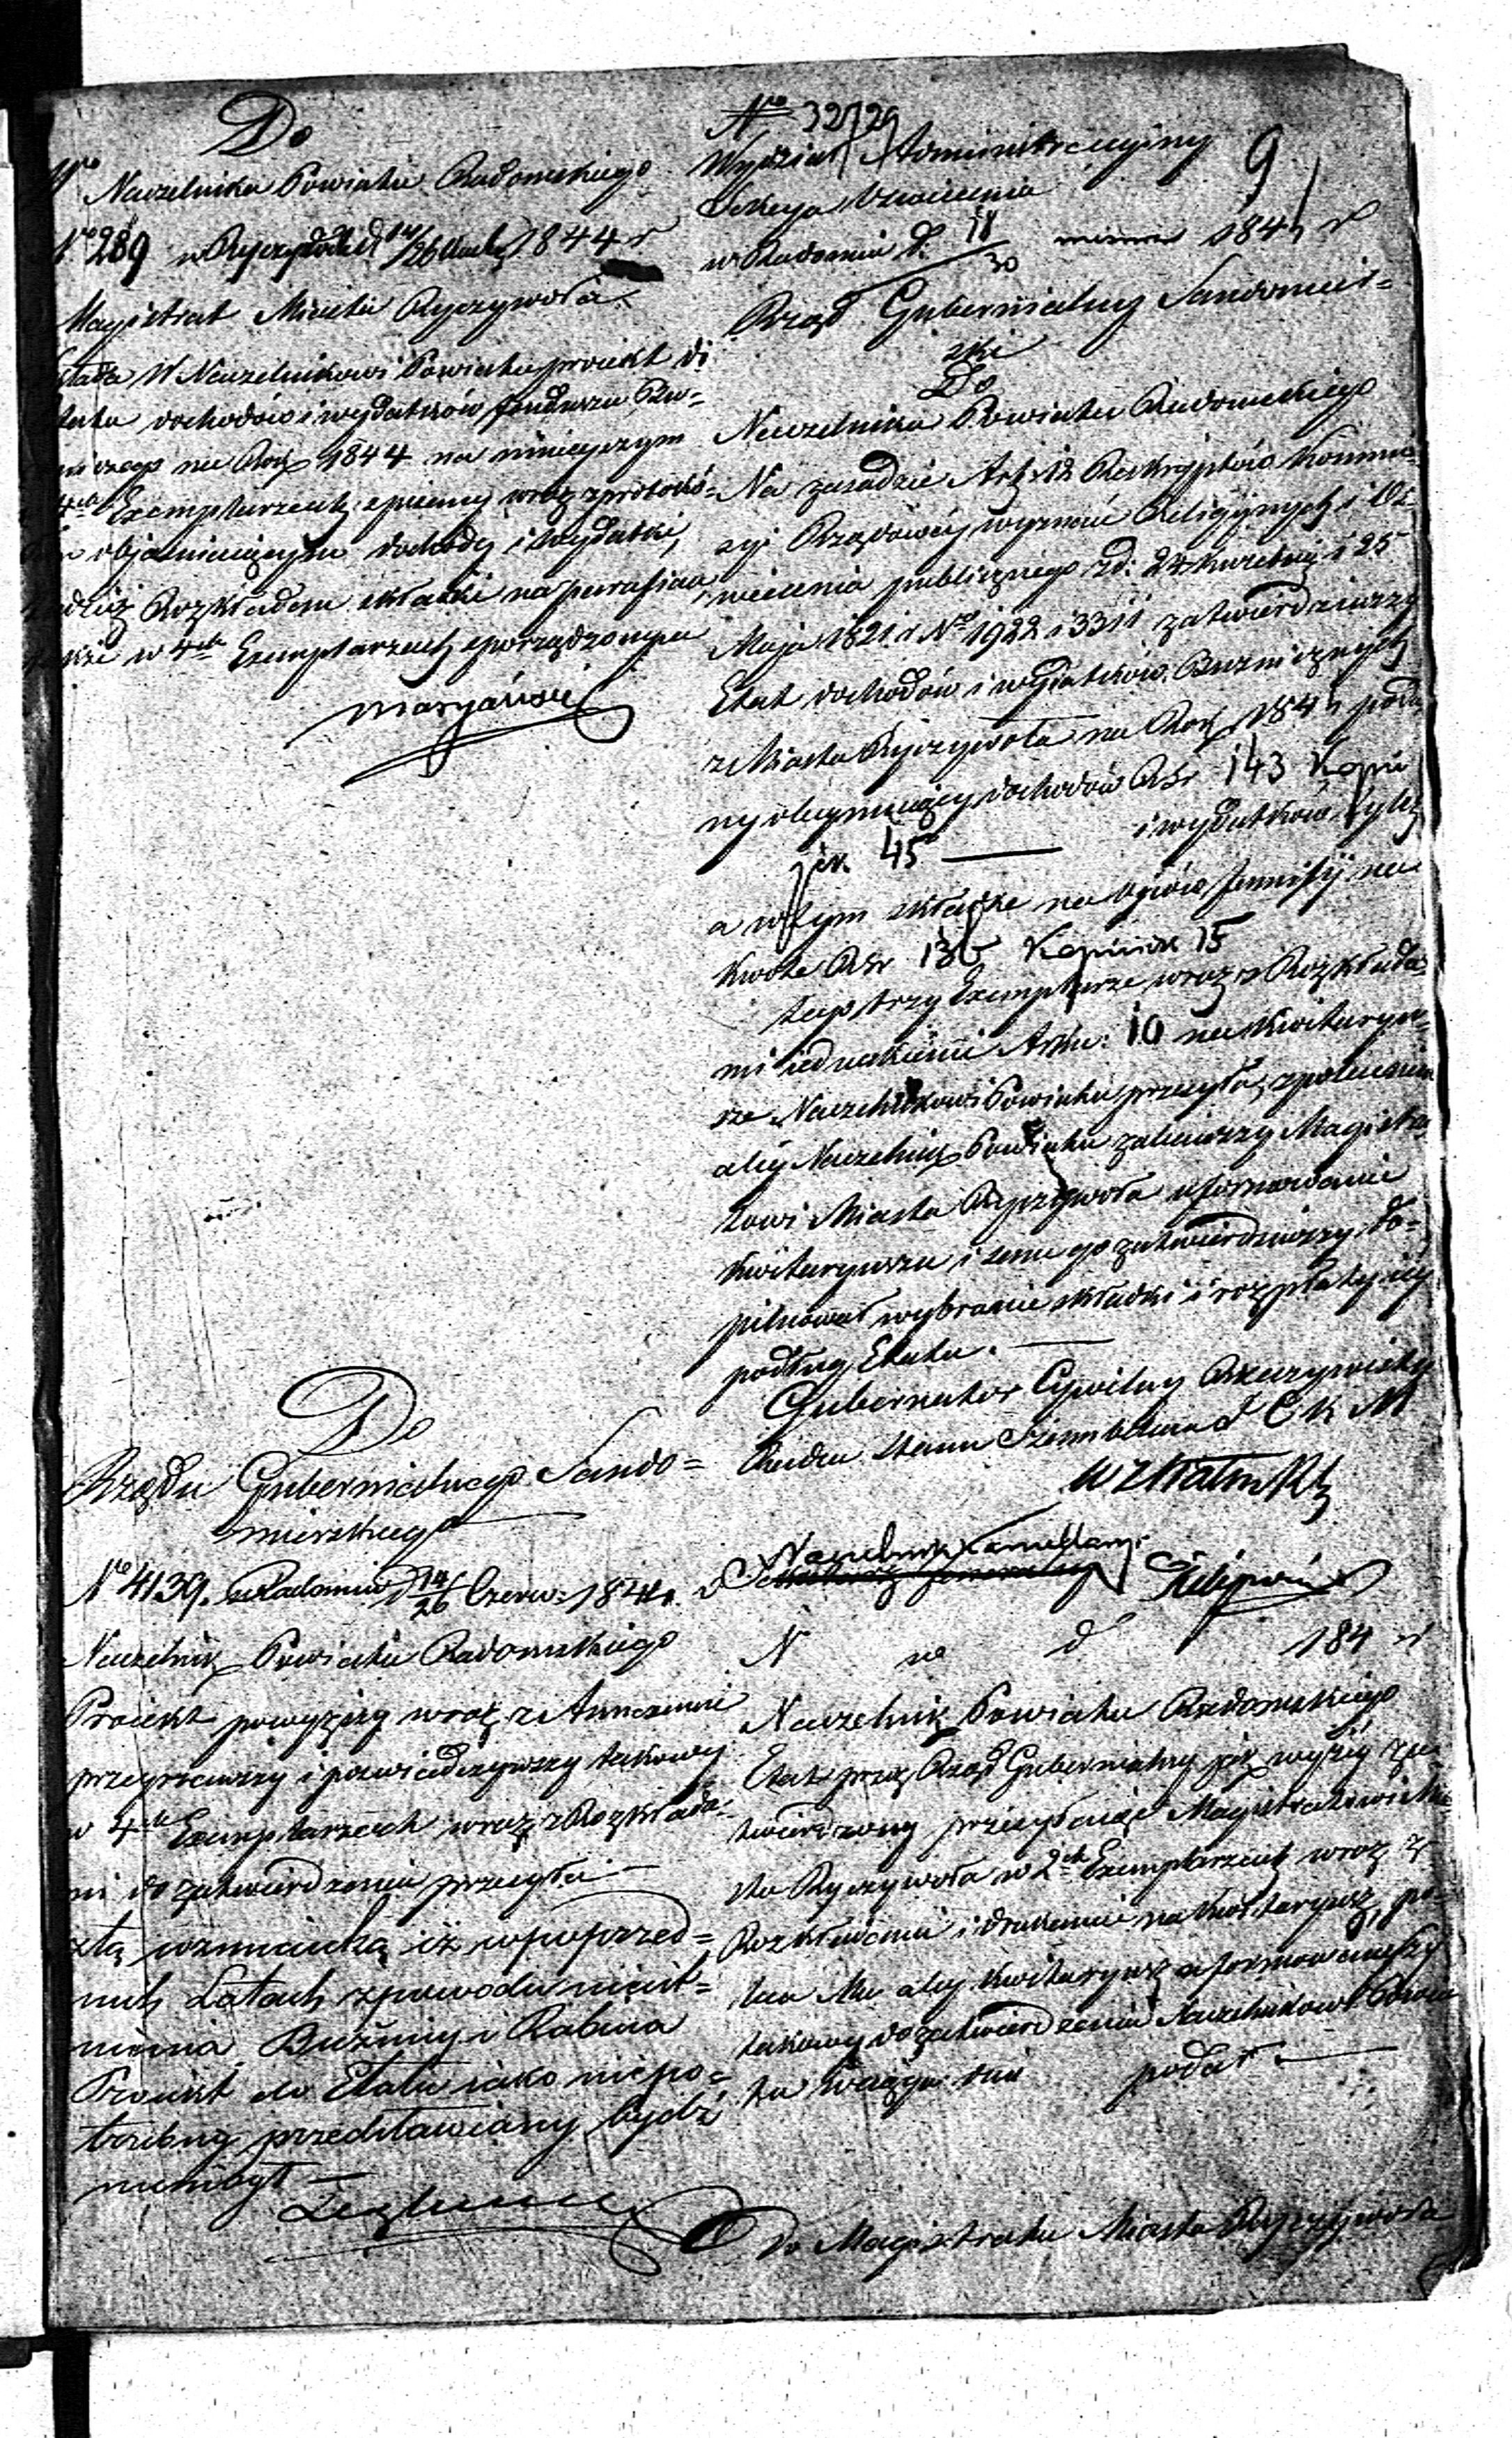 Do
Naczelnika Powiatu Radomskiego
No 289 w Ryczywole d 14/26 1844 r
Magistrat Miasta Ryczywoła
W Naczelnikowi Powiatu proiekt
dochodów i wydatków funduszu Bu=
na Rok 1844 na ninieyszym
Exemplarzach spisany wraz z protokó=
objaśniaiącym dochody i wydatki,
Rozkładem składki na parafian
w 4ch Exemplarzach sporządzonym
Maryański
Do
Rządu Gubernialnego Sando=
mierskiego
No 4139. w Radomiu d 14/26 Czerw: 1844 r
Naczelnik Powiatu Radomskiego
Proiekt powyższy wraz z Annexami
przeyrzawszy i poświadczywszy takowy
w 4ch Exemplarzach wraz z Rozkłada=
mi do zatwierdzenia przesyła
z tą wzmianką iż w poprzed=
nich Latach z powodu nieist=
nienia Bużnicy i Rabina
Proiekt do Etatu iako niepo=
trzebny przedstawiany bydź
niemógł —
No 32729
Wydział Administracyiny
Sekcya Oświecenia
w Radomiu d. 18/30 1844 r
9
Rząd Gubernialny Sandomier=
ski
Do
Naczelnika Powiatu Radomskiego
Na zasadzie Art: 12 Reskryptów Kommis
syi Rządowey wyznań Religiynych i Oś=
wiecenia publicznego z d: 24 Kwietnia i 25
Maja 1821 r No 1922 i 3311 zatwierdziwszy
Etat dochodów i wydatków Bużnicznych
z Miasta Ryczywoła na Rok 1844 poda
ny obeymuiący dochodów RSr 143 Kopie
jek 45 — i wydatków tyleż
a w tym składkę na
kwotę RSr 136 Kopiiek 15
tego trzy Exemplarze wraz z Rozkłada=
mi i drukami Arku: 10 na Kwitaryu=
sze Naczelnikowi Powiatu przesyła, z poleceniem
aby Naczelnik Powiatu zaleciwszy Magistra
towi Miasta Ryczywoła uformowanie
Kwitaryusza i temu go zatwierdziwszy, do=
pilnował wybranie składki i rozpłaty iey
podług Etatu. —
Gubernator Cywilny Rzeczywisty
Radca Stanu Szambelan d C K M
Naczelnik Kancellaryi
N na d 184 r
Naczelnik Powiatu Radomskiego
Etat przez Rząd Gubernialny jak wyżey za=
twierdzony przesyłaiąc Magistratowi Mia=
sta Ryczywoła w 2ch Exemplarzach wraz z
Rozkładami i drukami na Kwitaryusz, po=
leca Mu aby Kwitaryusz uformowawszy
takowy do zatwierdzenia Naczelnikowi Powia
tu w ciągu dni podał. —
Do Magistratu Miasta Ryczywoła